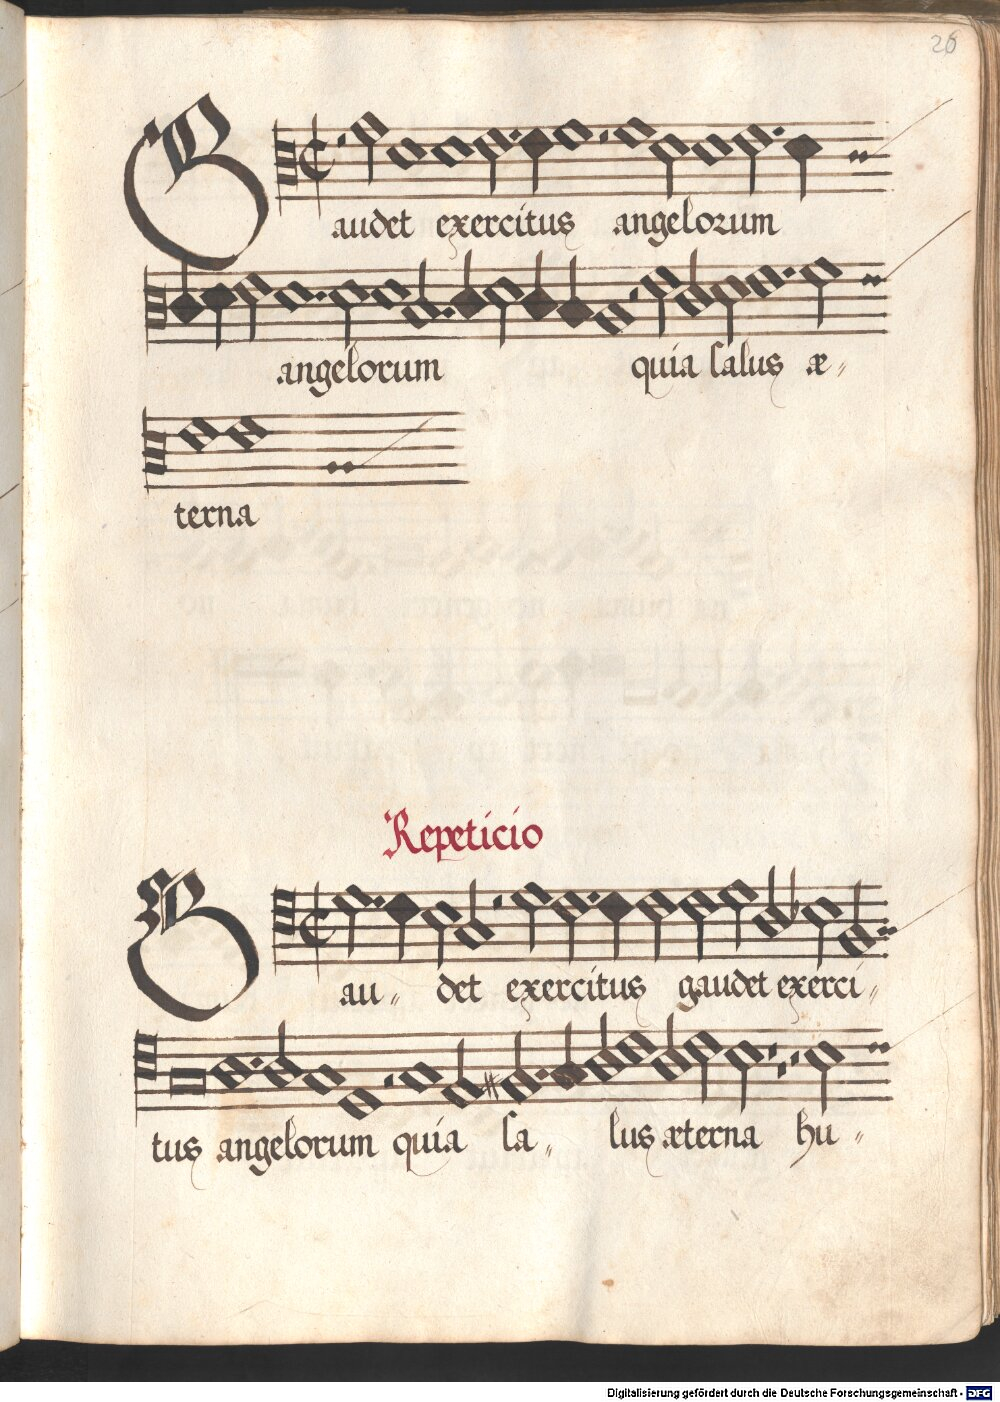 26
Gaudet exercitus angelorum
angelorum quia salus æ„
terna
Repeticio
Gau„ det exercitus gaudet exerci„
tus angelorum quia sa„ lus æterna hu„
Digitalisierung gefördert durch die Deutsche Forschungsgemeinschaft - DFG